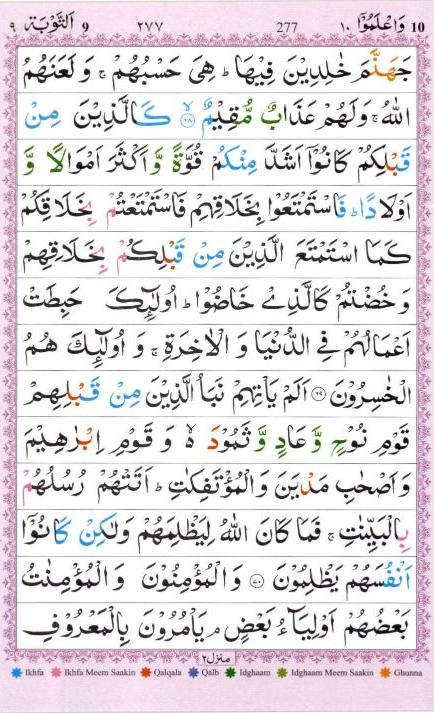 10 وَاعْلَمُوْٓا ١٠ 277 ٢٧٧ 9 اَلتَّوْبَة ٩
جَهَنَّمَ خٰلِدِيْنَ فِيْهَا ؕ هِىَ حَسْبُهُمْ ۚ وَ لَعَنَهُمُ
اللّٰهُ ۚ وَلَهُمْ عَذَابٌ مُّقِيْمٌ ۙ‏﴿۶۸﴾ كَالَّذِيْنَ مِنْ
قَبْلِكُمْ كَانُوْۤا اَشَدَّ مِنْكُمْ قُوَّةً وَّ اَكْثَرَ اَمْوَالًا وَّ
اَوْلَادًا ؕ فَاسْتَمْتَعُوْا بِخَلَاقِهِمْ فَاسْتَمْتَعْتُمْ بِخَلَاقِكُمْ
كَمَا اسْتَمْتَعَ الَّذِيْنَ مِنْ قَبْلِكُمْ بِخَلَاقِهِمْ
وَ خُضْتُمْ كَالَّذِىْ خَاضُوْا ؕ اُولٰٓٮِٕكَ حَبِطَتْ
اَعْمَالُهُمْ فِى الدُّنْيَا وَ الْاٰخِرَةِ ۚ وَ اُولٰٓٮِٕكَ هُمُ
الْخٰسِرُوْنَ‏ ﴿۶۹﴾ اَلَمْ يَاْتِهِمْ نَبَاُ الَّذِيْنَ مِنْ قَبْلِهِمْ
قَوْمِ نُوْحٍ وَّ عَادٍ وَّ ثَمُوْدَ ۙ وَ قَوْمِ اِبْرٰهِيْمَ
وَ اَصْحٰبِ مَدْيَنَ وَالْمُؤْتَفِكٰتِ ؕ اَتَتْهُمْ رُسُلُهُمْ
بِالْبَيِّنٰتِ ۚ فَمَا كَانَ اللّٰهُ لِيَظْلِمَهُمْ وَلٰـكِنْ كَانُوْۤا
اَنْفُسَهُمْ يَظْلِمُوْنَ‏ ﴿۷۰﴾ وَالْمُؤْمِنُوْنَ وَالْمُؤْمِنٰتُ
بَعْضُهُمْ اَوْلِيَآءُ بَعْضٍ‌ۘ يَاْمُرُوْنَ بِالْمَعْرُوْفِ
منزل٢
Ikhfa Ikhfa Meem Saakin Qalqala Qalb Idghaam Idghaam Meem Saakin Ghunna